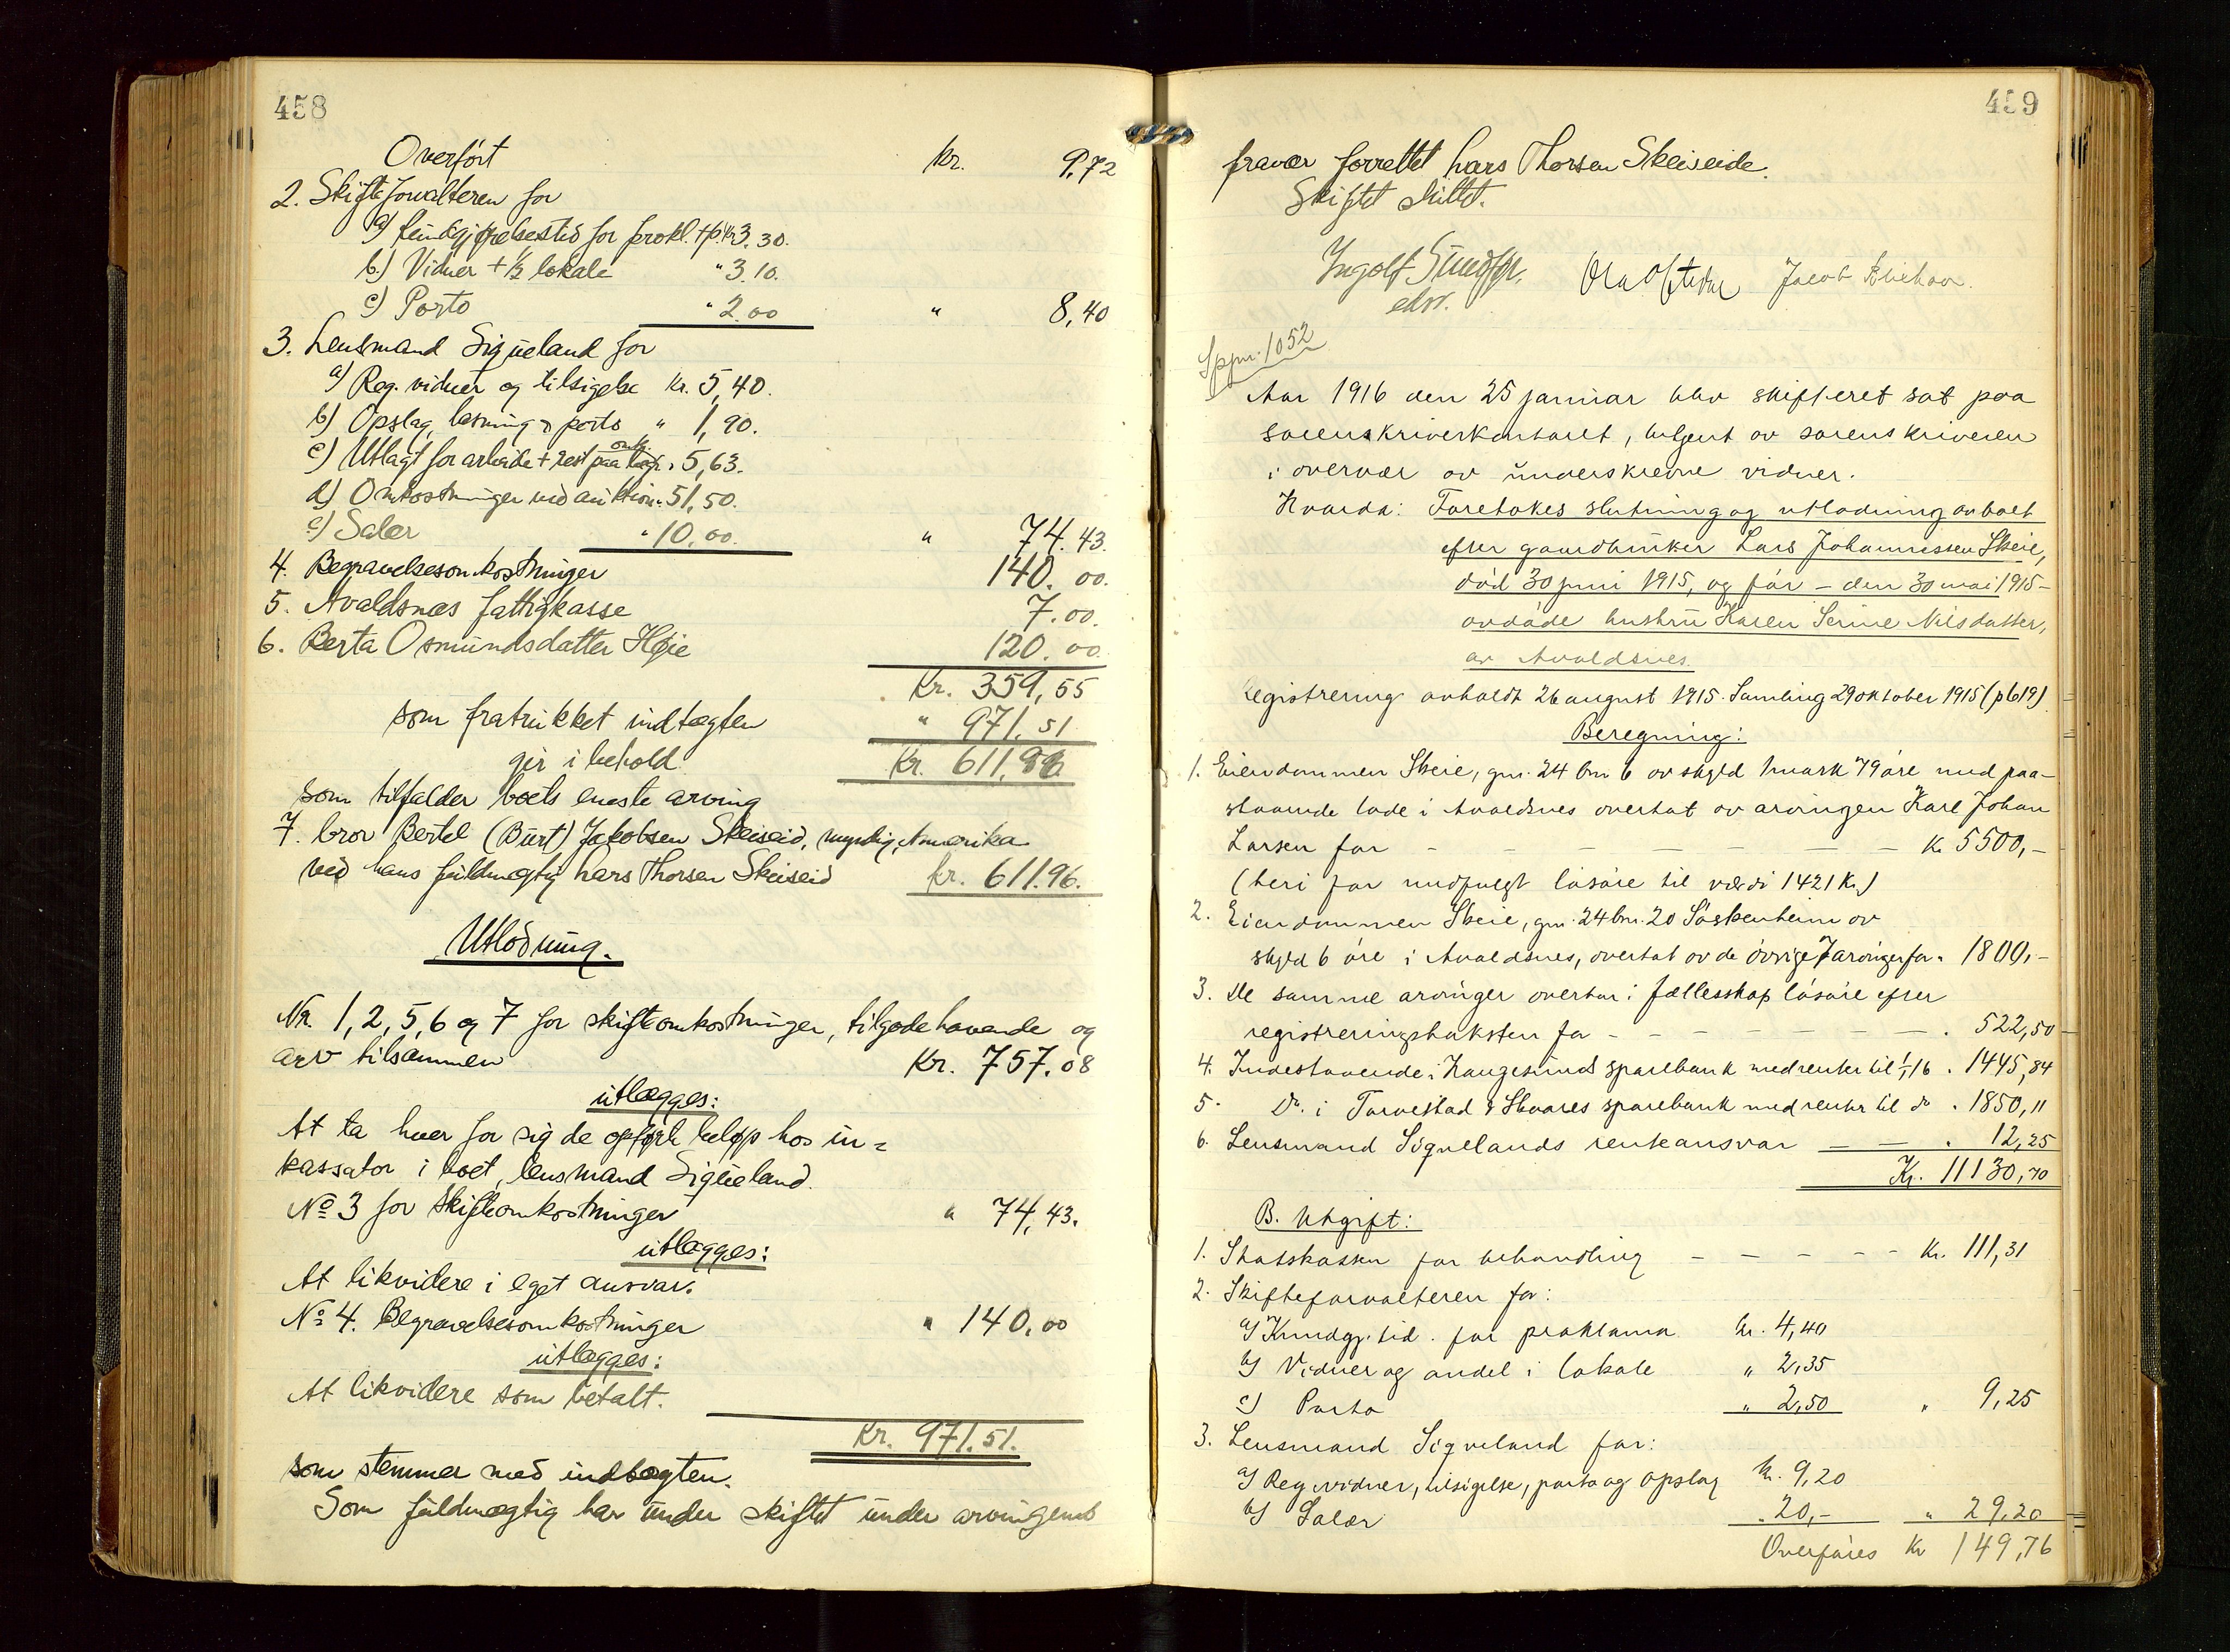 458
Overført Kr. 9,72
2. Skifteforvalteren for
a) kundgjørelsestid for prokl. + p. Kr 3.30.
b.) Vidner + ½ lokale " 3.10.
c) Porto " 2.00 " 8,40
3. Lensmand Siqueland for
a) Reg. vidner og tilsigelse Kr. 5,40.
b) Opslag, læsning & porto " 1,90.
c) Utlagt for arbeide + rest paa " 5,63.
d) Omkostninger ved auktion " 51,50.
e) Salær " 10.00. " 74.43.
4. Begravelsesomkostninger 140.00.
5. Avaldsnæs fattigkasse 7.00.
6. Berta Osmundsdatter Høie 120.00
Kr. 359,55
som fratrukket indtægten " 971.51
gir i behold Kr. 611,96
som tilfalder boets eneste arving
7. bror Bertel (Burt) Jakobsen Skeiseid, myndig, Amerika
ved hans fuldmægtig Lars Thorsen Skeiseid kr. 611.96.
Utlodning.
Nr. 1, 2, 5, 6 og 7 for skifteomkostninger, tilgodehavende og
arv tilsammen Kr. 757.08
utlægges:
At ta hver for sig de opførte beløp hos in=
kassator i boet, lensmand Siqueland.
No 3 for skifteomkostninger " 74,43.
utlægges:
At likvidere i eget ansvar.
No 4. Begravelsesomkostninger " 140.00
utlægges:
At likvidere som betalt.
Kr. 971.51.
som stemmer med indtægten.
Som fuldmægtig har under skiftet under arvingens
459
fravær forrettet Lars Thorsen Skeiseide.
Skiftet sluttet.
Ingolf Sundfør,
edsv.
Jacob
1052
Aar 1916 den 25 januar blev skifteret sat paa
sorenskriverkontoret, betjent av sorenskriveren
i overvær av underskrevne vidner.
Hvorda: Foretokes slutning og utlodning av boet
efter gaardbruker Lars Johannessen Skeie,
död 30 juni 1915, og för – den 30 mai 1915 –
avdöde hustru Karen Serine Nilsdatter,
av Avaldsnes.
Registrering avholdt 26 august 1915. Samling 29 oktober 1915 (p 619).
Beregning:
1. Eiendommen Skeie, gnr. 24 bnr 6 av skyld 1 mark 79 öre med paa-
staaende lade i Avaldsnes overtat av arvingen Karl Johan
Larsen for – – – – – – Kr 5500,–
(heri for medfulgt lösöre til værdi 1421 Kr)
2. Eiendommen Skeie, gnr. 24 bnr. 20 Söskenheim av
skyld 6 öre i Avaldsnes, overtat av de övrige 7 arvinger for " 1800,–
3. De samme arvinger overtar i fællesskap lösöre efter
registreringstaksten for – – – – – – . 522,50
4. Indestaaende i Haugesunds sparebank med renter til 1/1 16 . 1445,84
5. Do. i Torvestad & Skaares sparebank med renter til do . 1850,11
6. Lensmand Siqvelands renteansvar – – . 12,25
Kr. 11130,70
B. Utgift:
1. Statskassen for behandling – – – – – Kr. 111,31
2. Skifteforvalteren for:
a) Kundgj. tid. for proklama kr. 4,40
b) Vidner og andel i lokale " 2,35
c) Porto " 2,50 " 9,25
3. Lensmand Siqveland for:
a) Reg vidner, tilsigelse, porto og opslag kr. 9,20
b) Salær . 20,– " 29,20
Overföres Kr 149,76